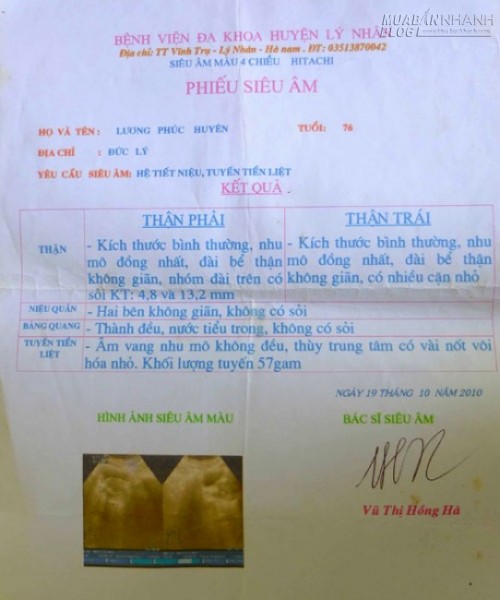 MUABANNHANH
BLOG
BỆNH VIỆN ĐA KHOA HUYỆN LÝ NHÂN
Địa chỉ: TT Vĩnh Trụ - Lý Nhân - Hà nam . ĐT: 03513870042
SIÊU ÂM MÀU 4 CHIỀU HITACHI
PHIẾU SIÊU ÂM
HỌ VÀ TÊN : LƯƠNG PHÚC HUYÊN TUỔI: 76
ĐỊA CHỈ : ĐỨC LÝ
YÊU CẦU SIÊU ÂM: HỆ TIẾT NIỆU, TUYẾN TIỀN LIỆT
KẾT QUẢ
THẬN PHẢI THẬN TRÁI
THẬN
- Kích thước bình thường, nhu
mô đồng nhất, đài bể thận
không giãn, nhóm đài trên có
sỏi KT: 4,8 và 13,2 mm
- Kích thước bình thường, nhu
mô đồng nhất, đài bể thận
không giãn, có nhiều cặn nhỏ
NIỆU QUẢN - Hai bên không giãn, không có sỏi
BÀNG QUANG - Thành đều, nước tiểu trong, không có sỏi
TUYẾN TIỀN LIỆT - Âm vang nhu mô không đều, thùy trung tâm có vài nốt vôi
hóa nhỏ. Khối lượng tuyến 57gam
NGÀY 19 THÁNG 10 NĂM 2010
HÌNH ẢNH SIÊU ÂM MÀU BÁC SĨ SIÊU ÂM
Vũ Thị Hồng Hà